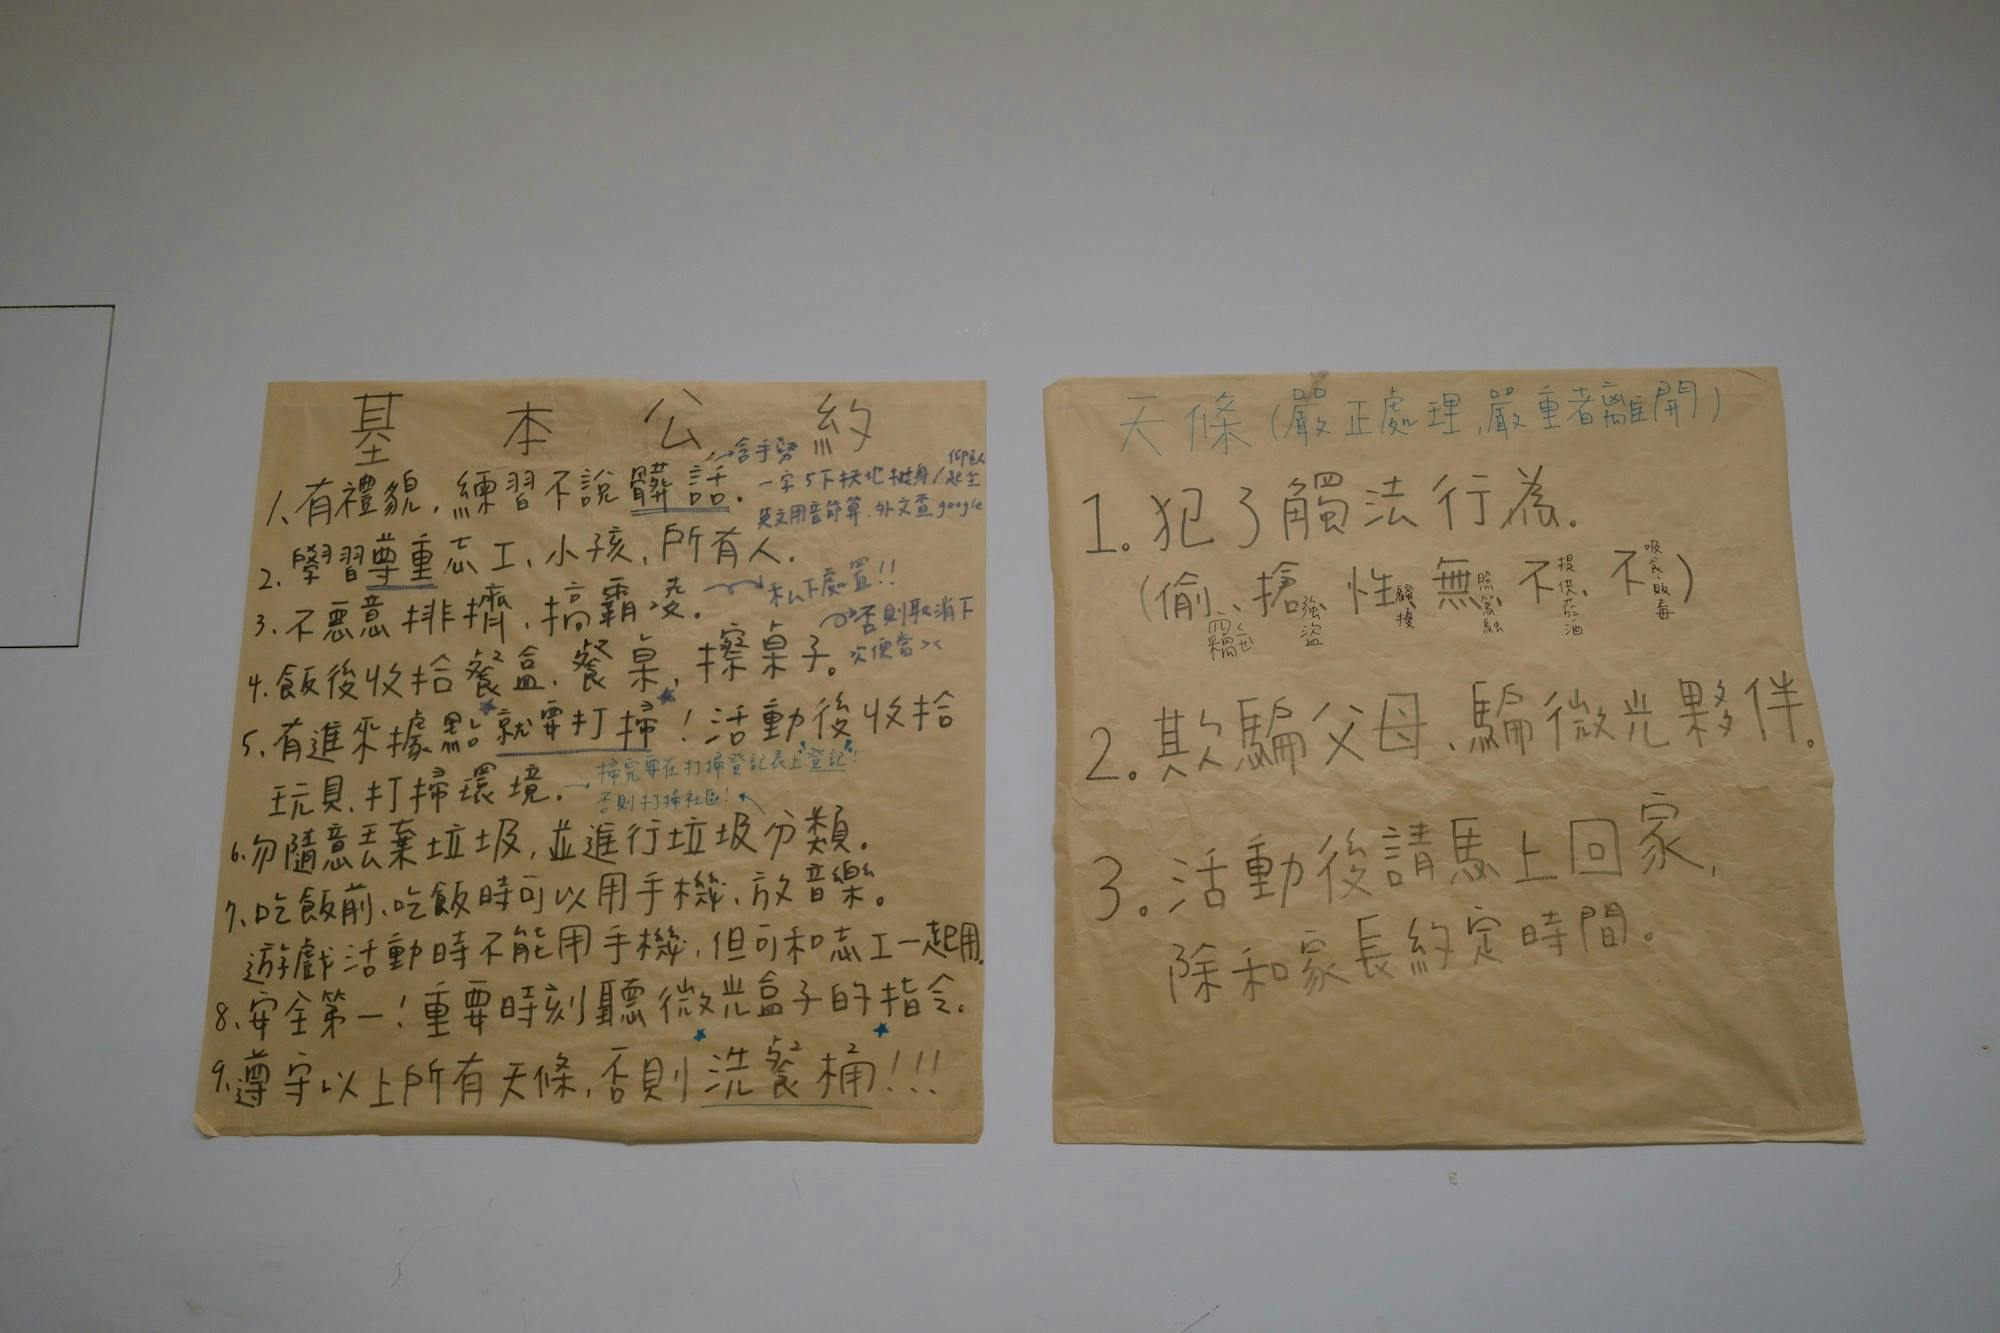 基本公約
1、有禮貌,練習不說髒話。
→含手勢
一字5下伏地挺身/仰臥起坐
英文用音節算.外文查google
2、學習尊重志工、小孩,所有人.
3、不惡意排擠,搞霸凌。
→私下處置!!
4、飯後收拾餐盒、餐桌,擦桌子。
→否則取消下次便當><
5、有進來據點就要打掃!活動後收拾
玩具、打掃環境。
→掃完要在打掃登記表上登記!
否則打掃社區!
6、勿隨意丟棄垃圾,並進行垃圾分類。
7、吃飯前、吃飯時可以用手機、放音樂。
遊戲活動時不能用手機,但可和志工一起用.
8、安全第一!重要時刻聽微光盒子的指令。
9、遵守以上所有天條,否則洗餐桶!!!
天條(嚴正處理,嚴重者離開)
1.犯了觸法行為.
(偷、搶強盜 性騷擾 無照駕 不提供 不吸食、販毒)
2.欺騙父母、騙微光夥伴。
3.活動後請馬上回家,
除和家長約定時間。